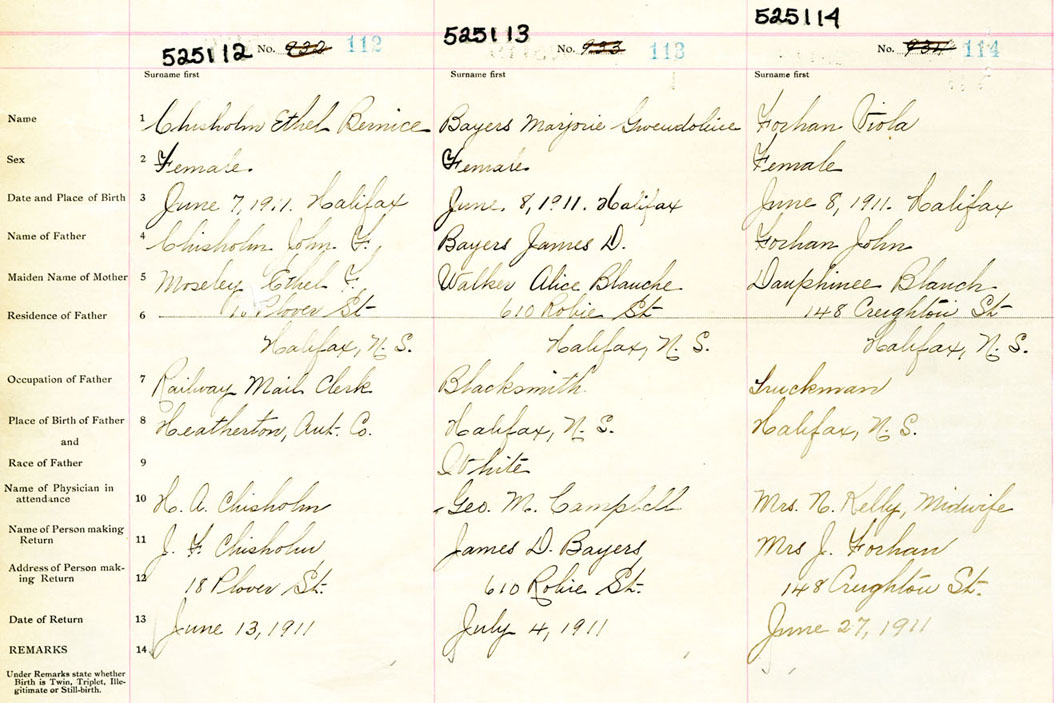 525112 No. 932 112
525113 No. 933 113
525114 No. 934 114
Surname first Surname first Surname first
Name 1 Chisholm Ethel Bernice Bayers Marjorie Gwendoline Forhan Viola
Sex 2 Female. Female Female
Date and Place of Birth 3 June 7, 1911. Halifax June 8, 1911. Halifax June 8, 1911. Halifax
Name of Father 4 Chisholm John F. Bayers James D. Forhan John
Maiden Name of Mother 5 Moseley Ethel F. Walker Alice Blanche Dauphinee Blanch
Residence of Father 6 Plover St 610 Robie St. 148 Creighton St
Halifax, N. S. Halifax, N. S. Halifax, N. S.
Occupation of Father 7 Railway Mail Clerk Blacksmith Truckman
Place of Birth of Father 8 Heatherton, Ant. Co. Halifax, N. S. Halifax, N. S.
and
Race of Father 9 White
Name of Physician in
attendance 10 H. A. Chisholm Geo. M. Campbell Mrs. N. Kelly, Midwife
Name of Person making
Return 11 J. F. Chisholm James D. Bayers Mrs J. Forhan
Address of Person mak-
ing Return 12 18 Plover St. 610 Robie St. 148 Creighton St.
Date of Return 13 June 13, 1911 July 4, 1911 June 27, 1911
REMARKS 14
Under Remarks state whether
Birth is Twin, Triplet, Ille-
gitimate or Still-birth.